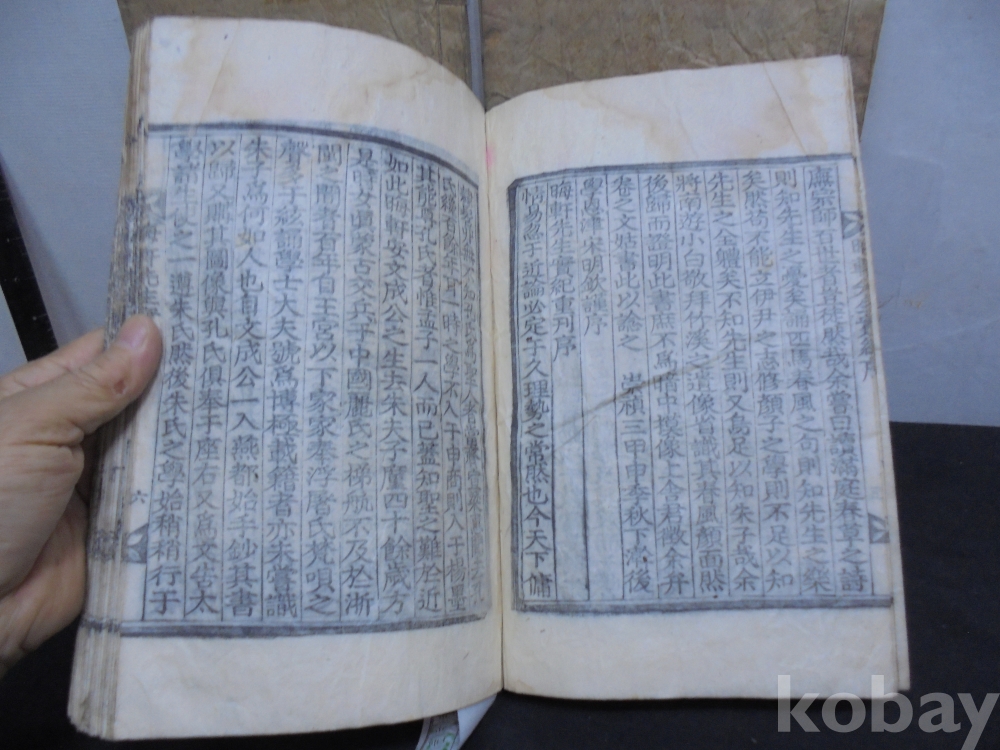 廡宗師百世者豈徒然哉余嘗曰讀滿庭春草之詩
則知先生之憂矣論匹馬春風之句則知先生之樂
矣然苟不能立伊尹之志修顏子之學則不足以知
先生之全體矣不知先生則又烏足以知朱子哉余
將南遊小白敬拜竹溪之遺像皆識其春風顏面然
後歸而證明此書庶不爲暗中摸像上舍君徵余弁
卷之文姑書此以諗之 崇禎三甲申季秋下澣後
學恩津宋明欽謹序
晦軒先生實紀重刊序
情易忽于近論必定于久理勢之常然也今天下傭
人家
氏 一時之學不入于申商則入于楊墨
其能尊孔氏者惟孟子一人而已盖知聖之難於近
如此晦軒安文成公之生去朱夫子廑四十餘歲方
是時女眞蒙古交兵于中國麗氏之梯航不及於浙
閩之間者百年自王宮以下家家奉浮屠氏梵唄之
聲多于絃誦學士大夫號爲博極載籍者亦未嘗識
朱子爲何如人也自文成公一入燕都始手鈔其書
以歸又摹其圖像與孔氏俱奉于座右又爲文告太
學諸生使之一遵朱氏然後朱氏之學始稍稍行于
六
kobay